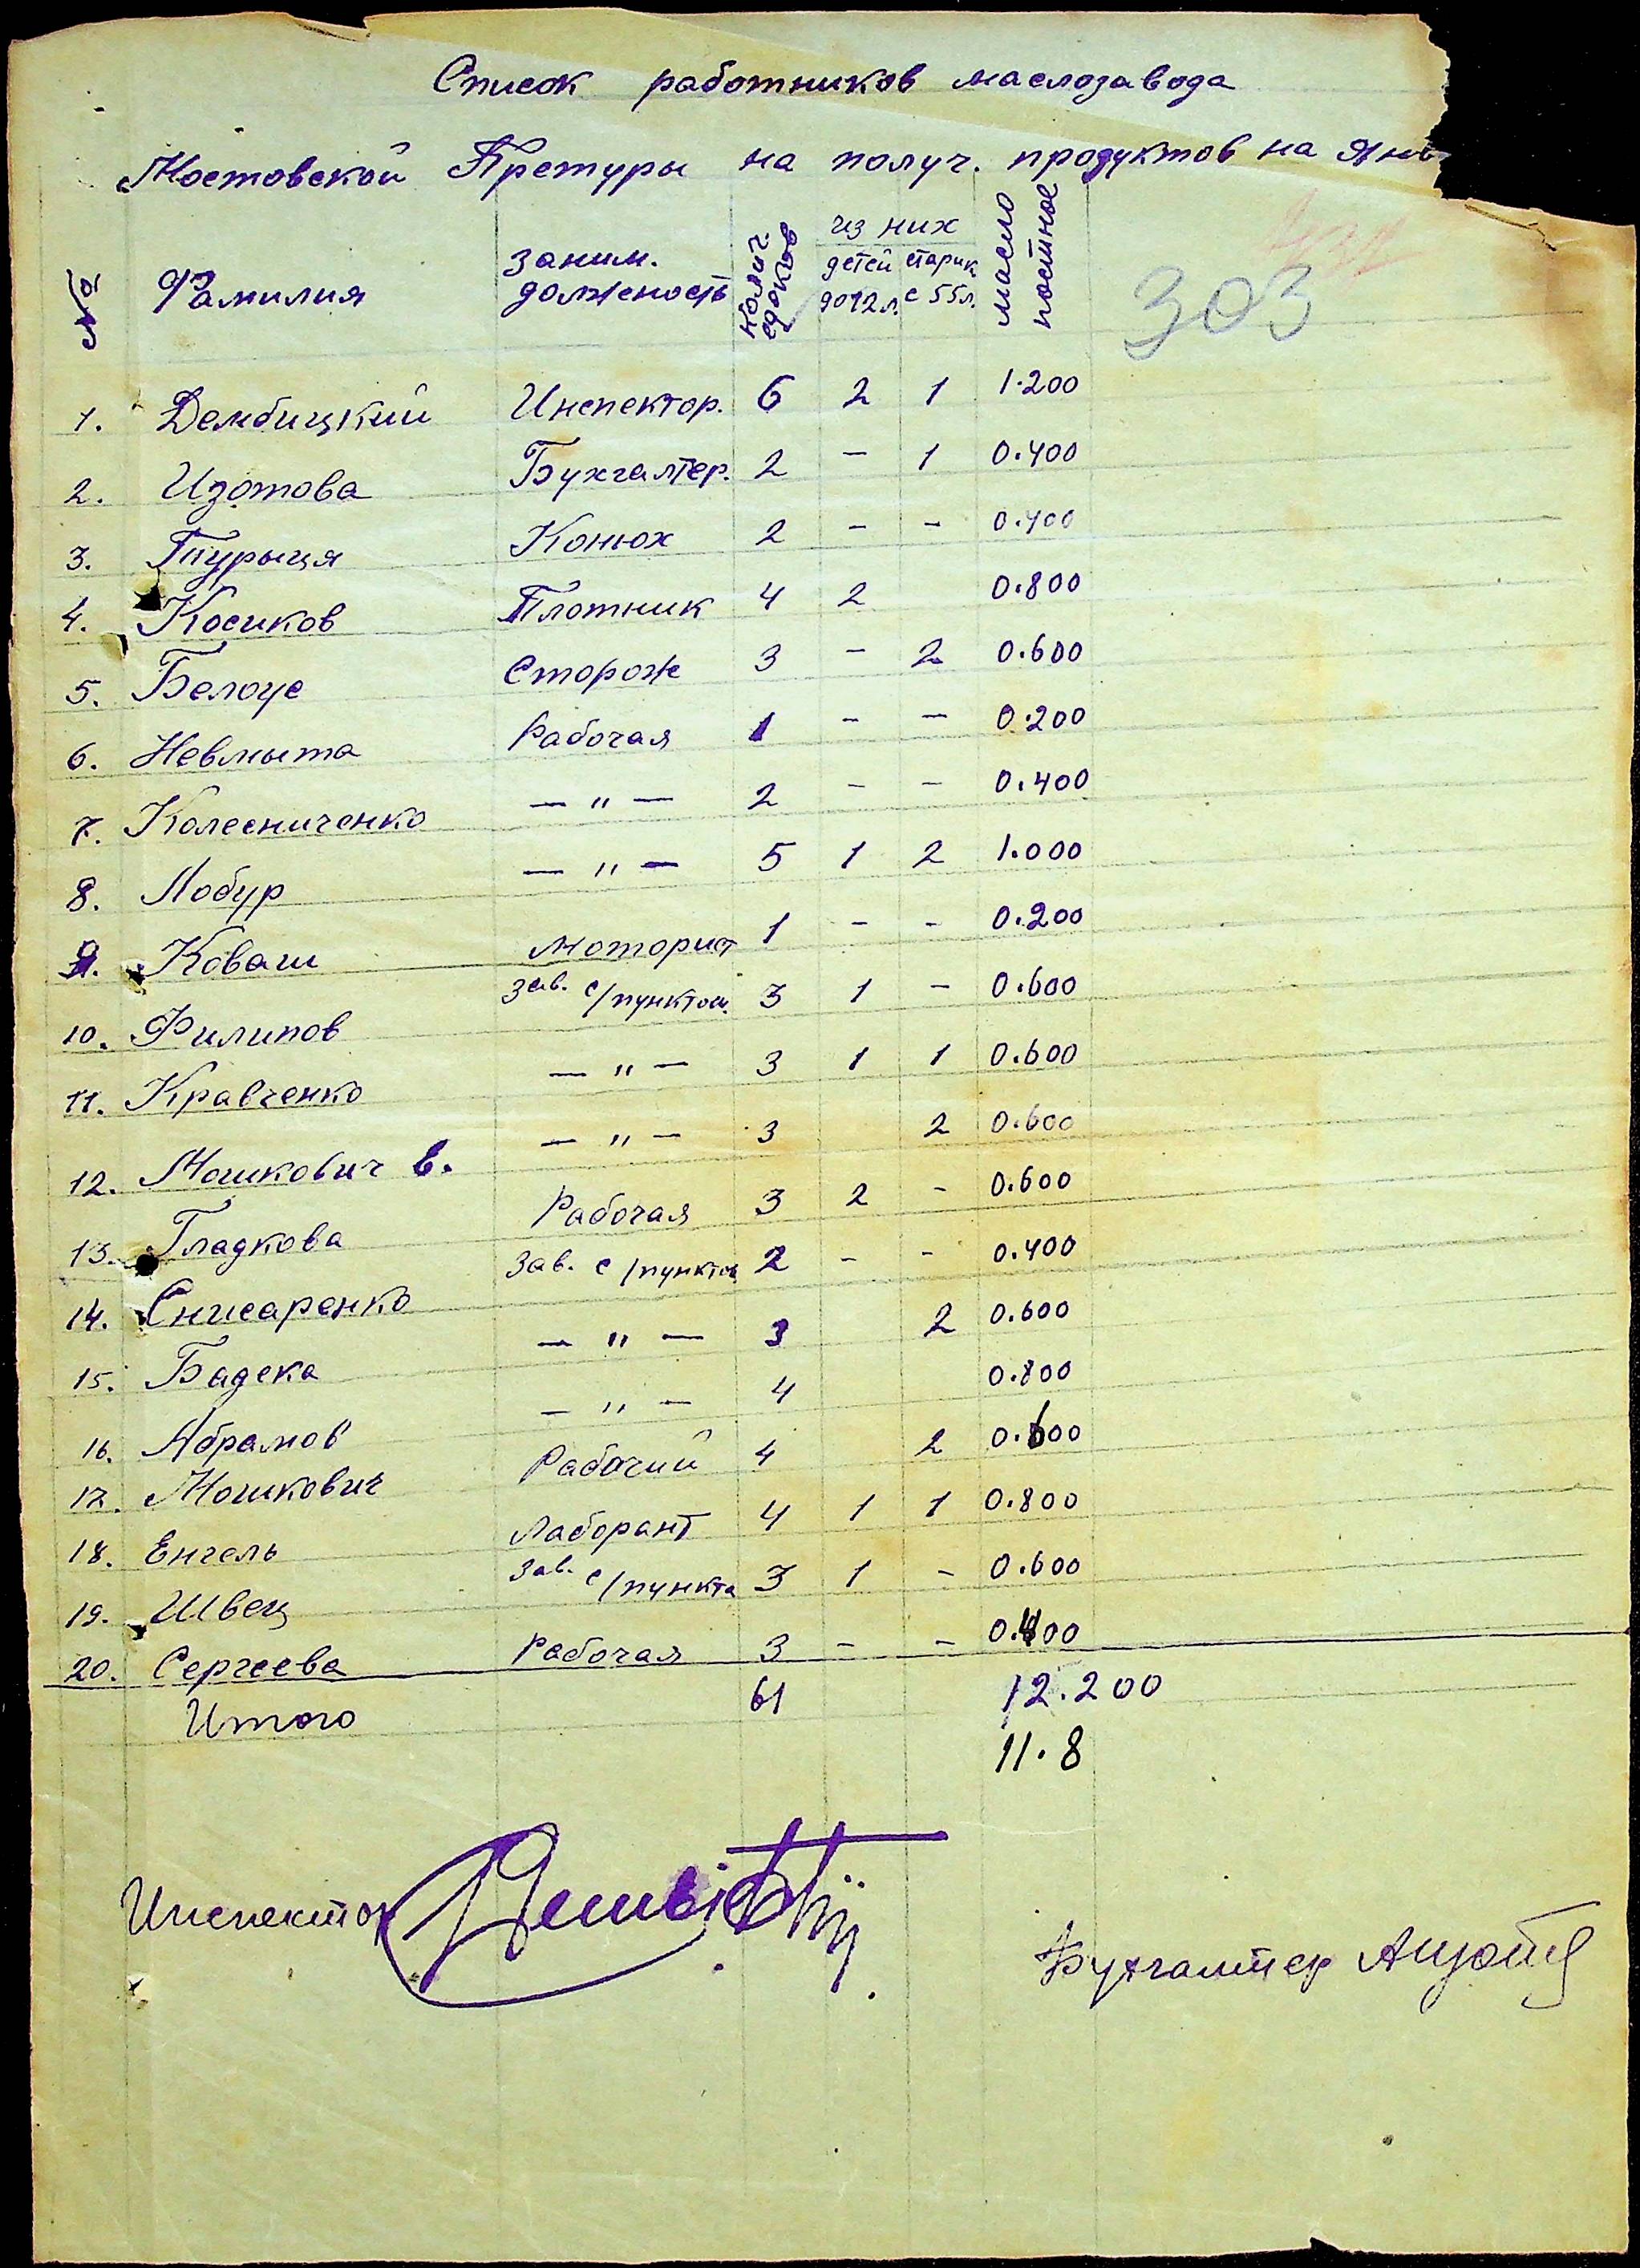 Список работников маслозавода
Мостовской Претуры на получ. продуктов на Янв
№ Фамилия заним. должность колич. едоков из них детей до 12 л. старик с 55 л. масло постное
303
1. Дембицкий Инспектор. 6 2 1 1.200
2. Изотова Бухгалтер. 2 – 1 0.400
3. Турыця Конюх 2 – – 0.400
4. Косиков Плотник 4 2 0.800
5. Белоус Сторож 3 – 2 0.600
6. Невмыта Рабочая 1 – – 0.200
7. Колесниченко — " — 2 – – 0.400
8. Лобур — " — 5 1 2 1.000
9. Коваш Моторист 1 – – 0.200
10. Филипов Зав. с/пунктом 3 1 – 0.600
11. Кравченко — " — 3 1 1 0.600
12. Мошкович Е. — " — 3 2 0.600
13. Гладкова Рабочая 3 2 – 0.600
14. Снисаренко Зав. с/пунктом 2 – – 0.400
15. Бадека — " — 3 2 0.600
16. Абрамов — " — 4 0.800
17. Мошкович Рабочий 4 2 0.600
18. Енгель Лаборант 4 1 1 0.800
19. Швец Зав. с/пункта 3 1 – 0.600
20. Сергеева Рабочая 3 – – 0.400
Итого 61 12.200
11.8
Инспектор
Бухгалтер